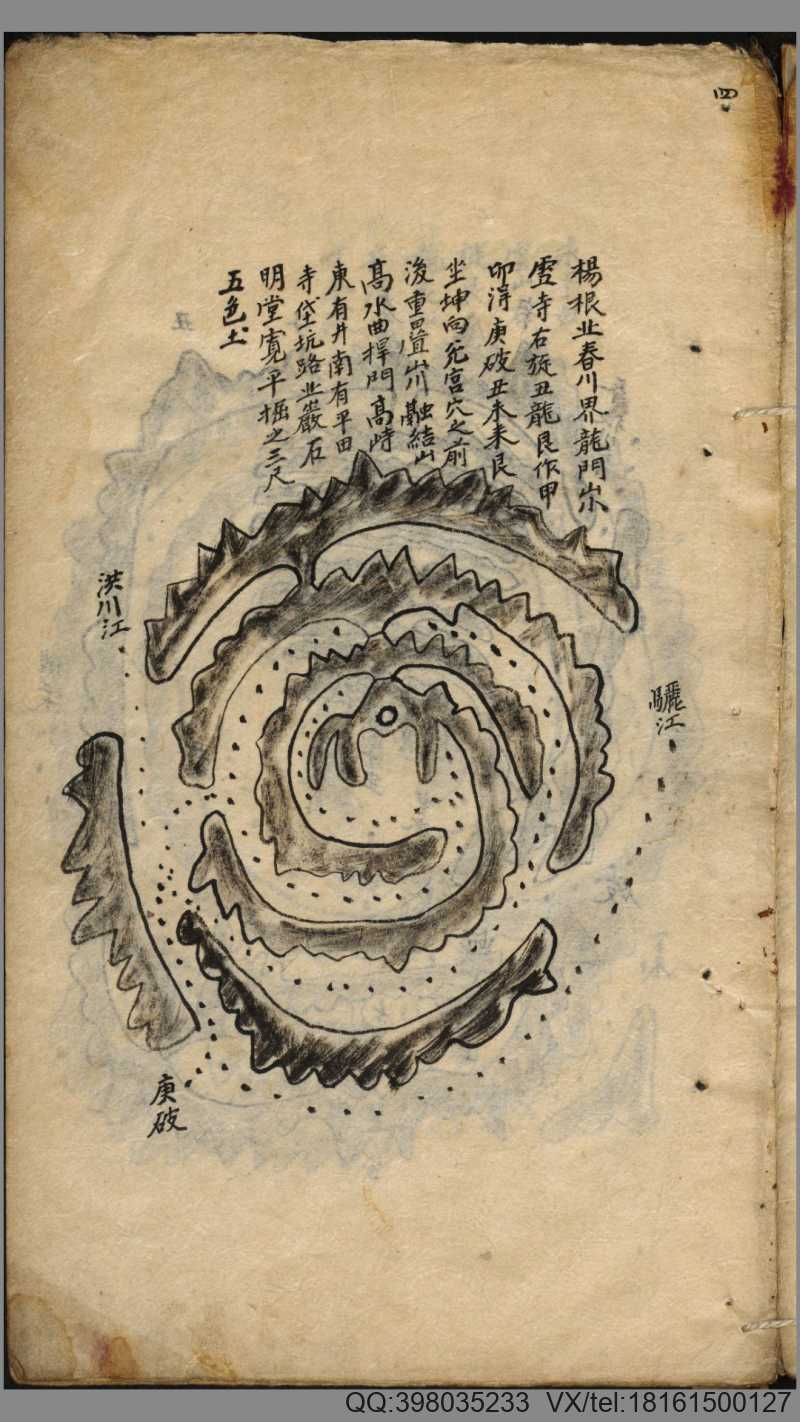 四
楊根北春川界龍門山
虛寺右旋丑龍艮作甲
卯淂庚破丑木来艮
坐坤向兌宮穴之前
後重疊山川融結山
高水曲捍門高峙
東有井南有平田
寺垈坑路北巖石
明堂寬平掘之三尺
五色土
洪川江
驪江
庚破
QQ:398035233 VX/tel:18161500127